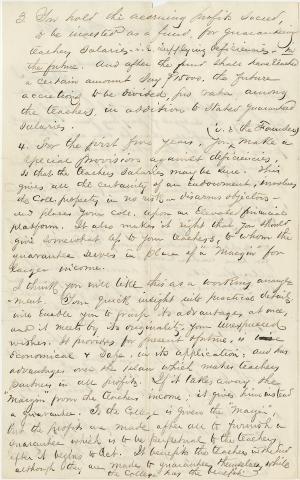 3 You hold the accruing profits sacred,
to be invested as a fund, for guaranteeing
teachers Salaries - i.e. supplying deficiencies - in
the future. And after the fund shall have reached
a certain amount Say $ the future
accretions to be divided, pro rata among
the teachers, in addition to Stated guaranteed
Salaries.
(i.e. the Founders
4. For the first five years, You, make a
special provision against deficiencies,
so that the teachers salaries may be sure. This
gives all the certainty of an Endowment, involves
the Coll. property in no risk - disarms objectors -
and places your Coll. upon an Elevated financial
platform. It also makes it right that you should
give somewhat less to your teachers, to whom the
guarantee serves in place of a Margin for
larger income.
I think you will like this as a working arrange
-ment. Your quick insight into practical details
will enable you to grasp its advantages at once,
and it meets by its originality, your unexpressed
wishes. It provides for present & future, is
Economical & Safe, in its application; and has
advantages over the plan which makes teachers
partners in all profits. If it takes away the
"Margin" from the teachers income; it gives him instead
a Guarantee. To the College is given the Margin,
but the Profits are made after all to furnish a
Guarantee which is to be perpetual to the teachers
after it begins to Act. It benefits the teachers in the End
although they are made to guarantee themselves, while
the College has the benefit.